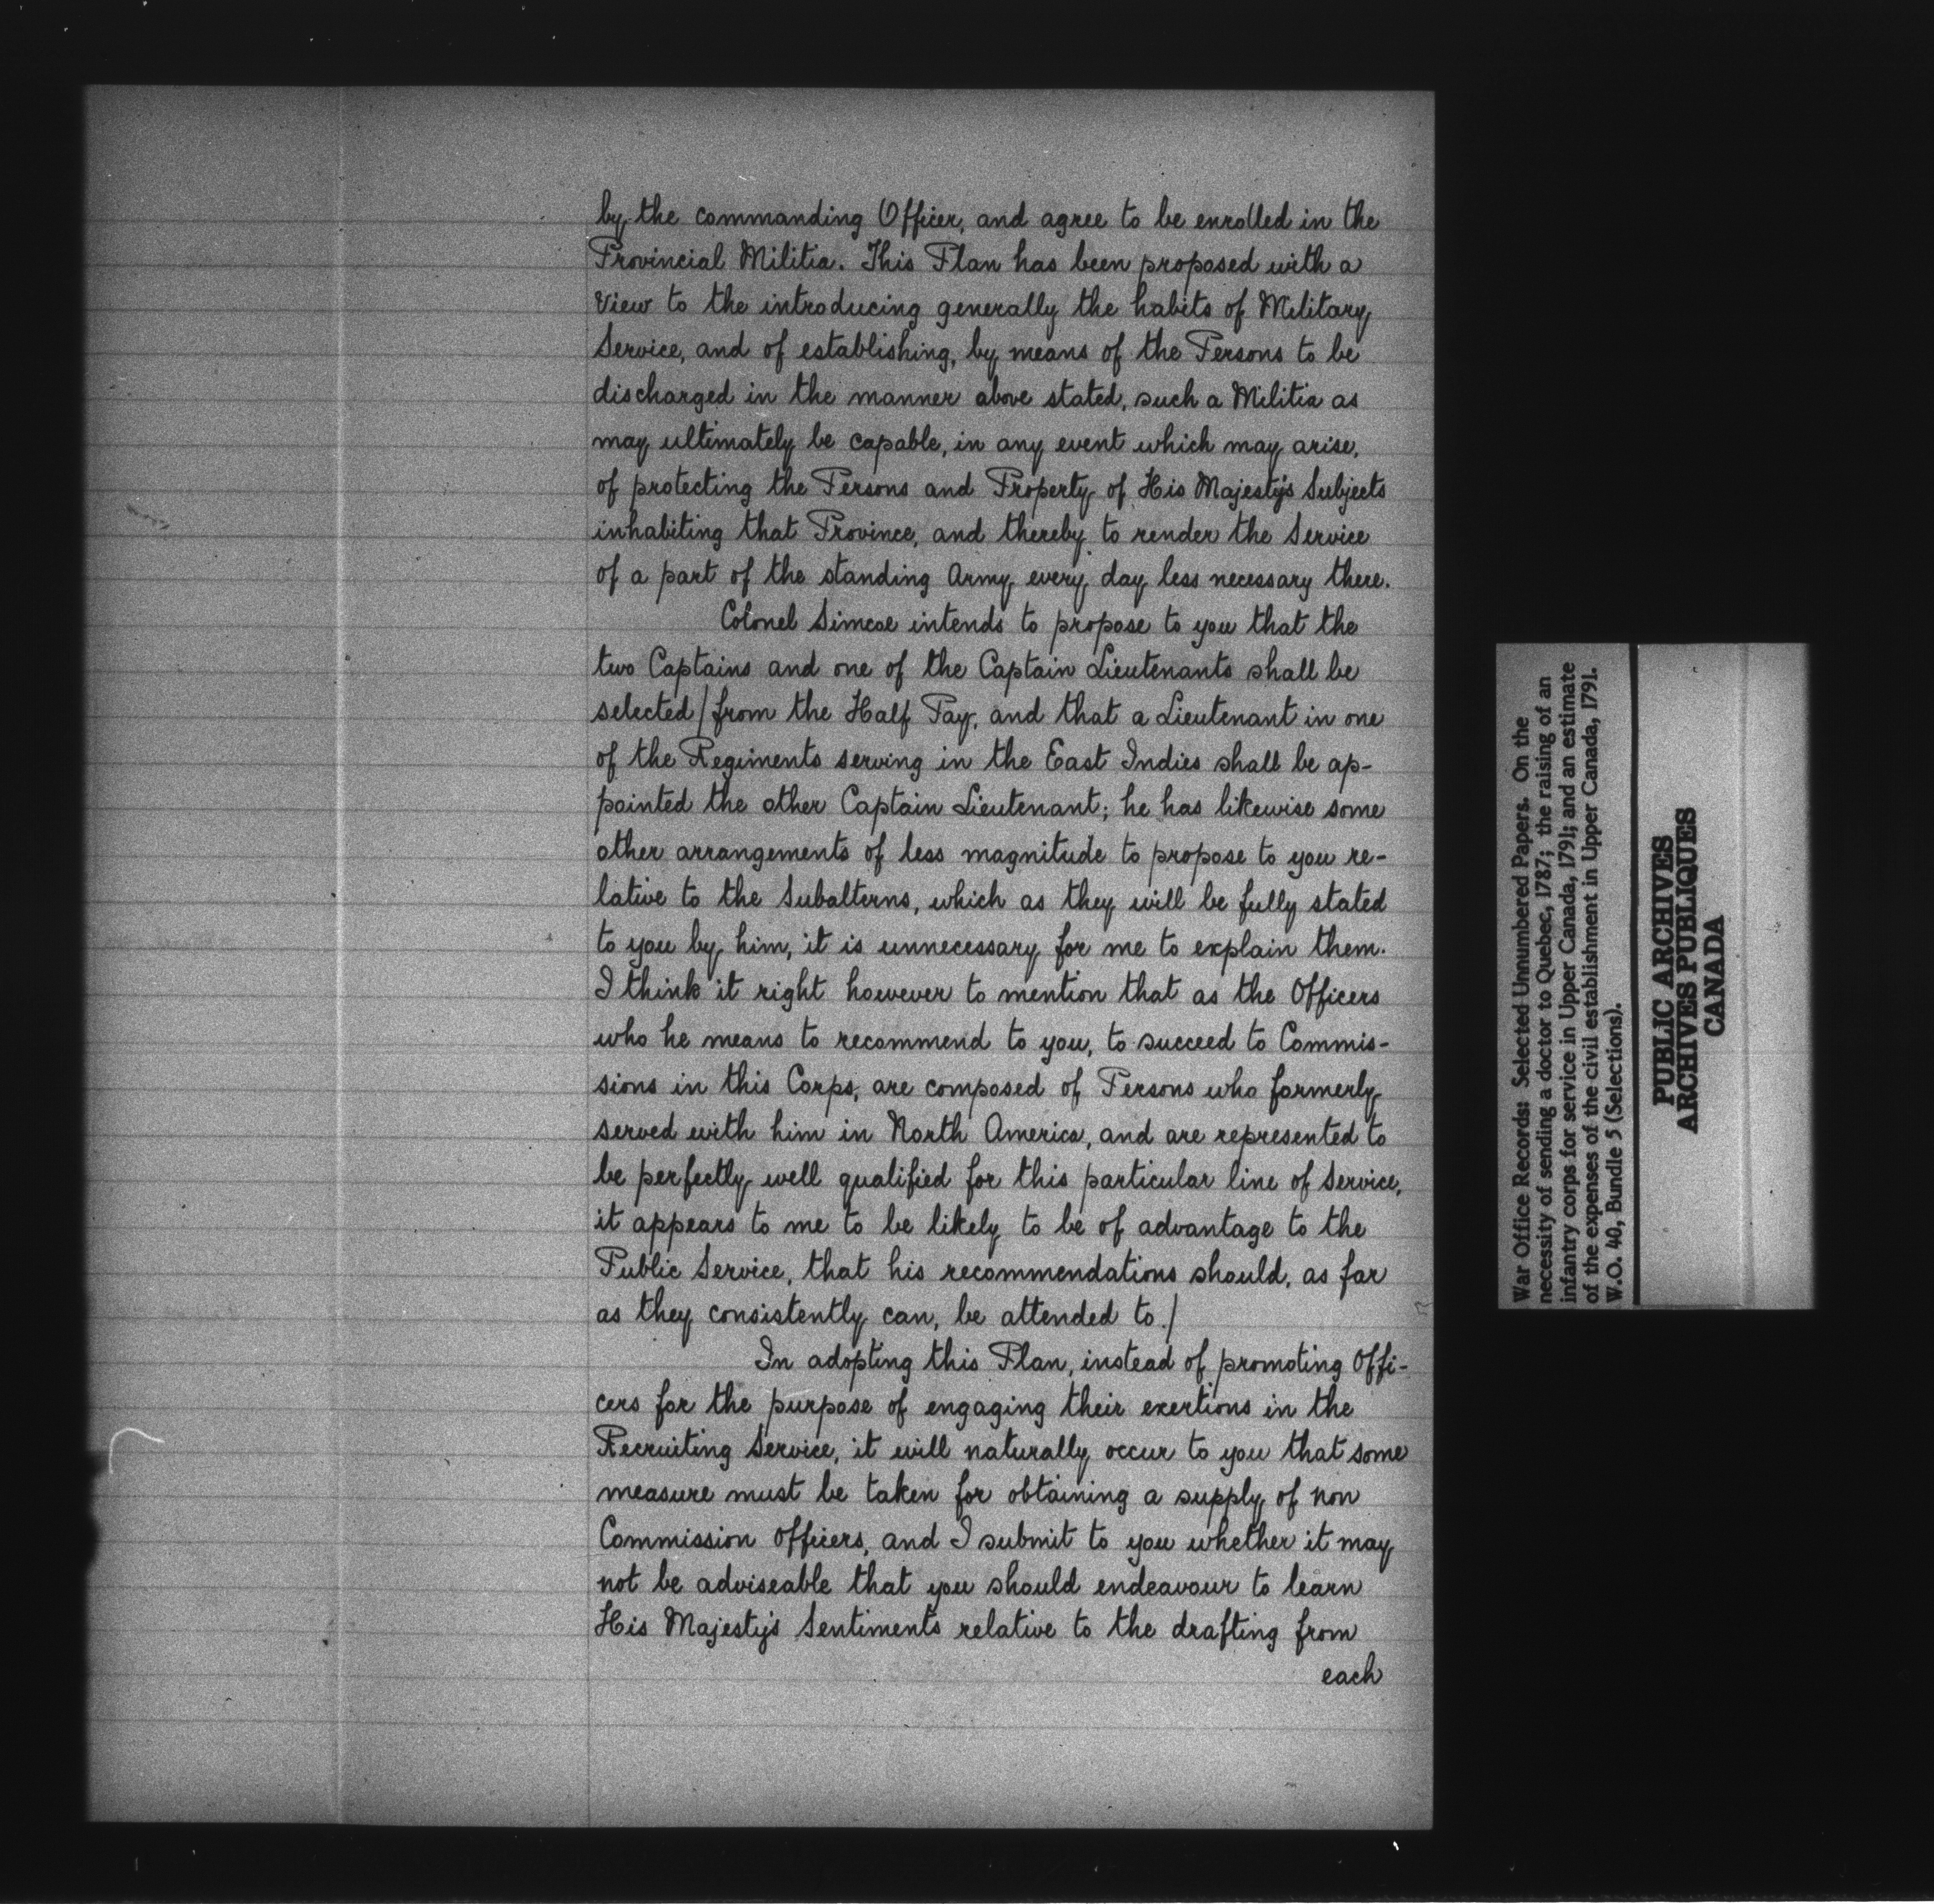 by the commanding Officer, and agree to be enrolled in the
Provincial Militia. This Plan has been proposed with a
View to the introducing generally the habits of Military
Service, and of establishing, by means of the Persons to be
discharged in the manner above stated, such a Militia as
may ultimately be capable, in any event which may arise,
of protecting the Persons and Property of His Majesty's Subjects
inhabiting that Province, and thereby to render the Service
of a part of the standing Army every day less necessary there.
Colonel Simcoe intends to propose to you that the
two Captains and one of the Captain Lieutenants shall be
selected / from the Half Pay, and that a Lieutenant in one
of the Regiments serving in the East Indies shall be ap-
pointed the other Captain Lieutenant; he has likewise some
other arrangements of less magnitude to propose to you re-
lative to the Subalterns, which as they will be fully stated
to you by him, it is unnecessary for me to explain them.
I think it right however to mention that as the Officers
who he means to recommend to you, to succeed to Commis-
sions in this Corps, are composed of Persons who formerly
served with him in North America, and are represented to
be perfectly well qualified for this particular line of Service,
it appears to me to be likely to be of advantage to the
Public Service, that his recommendations should, as far
as they consistently can, be attended to. /
In adopting this Plan, instead of promoting Offi-
cers for the purpose of engaging their exertions in the
Recruiting Service, it will naturally occur to you that some
measure must be taken for obtaining a supply of non
Commission Officers, and I submit to you whether it may
not be adviseable that you should endeavour to learn
His Majesty's Sentiments relative to the drafting from
each
War Office Records: Selected Unnumbered Papers. On the
necessity of sending a doctor to Quebec, 1787; the raising of an
infantry corps for service in Upper Canada, 1791; and an estimate
of the expenses of the civil establishment in Upper Canada, 1791.
W.O. 40, Bundle 5 (Selections).
PUBLIC ARCHIVES
ARCHIVES PUBLIQUES
CANADA